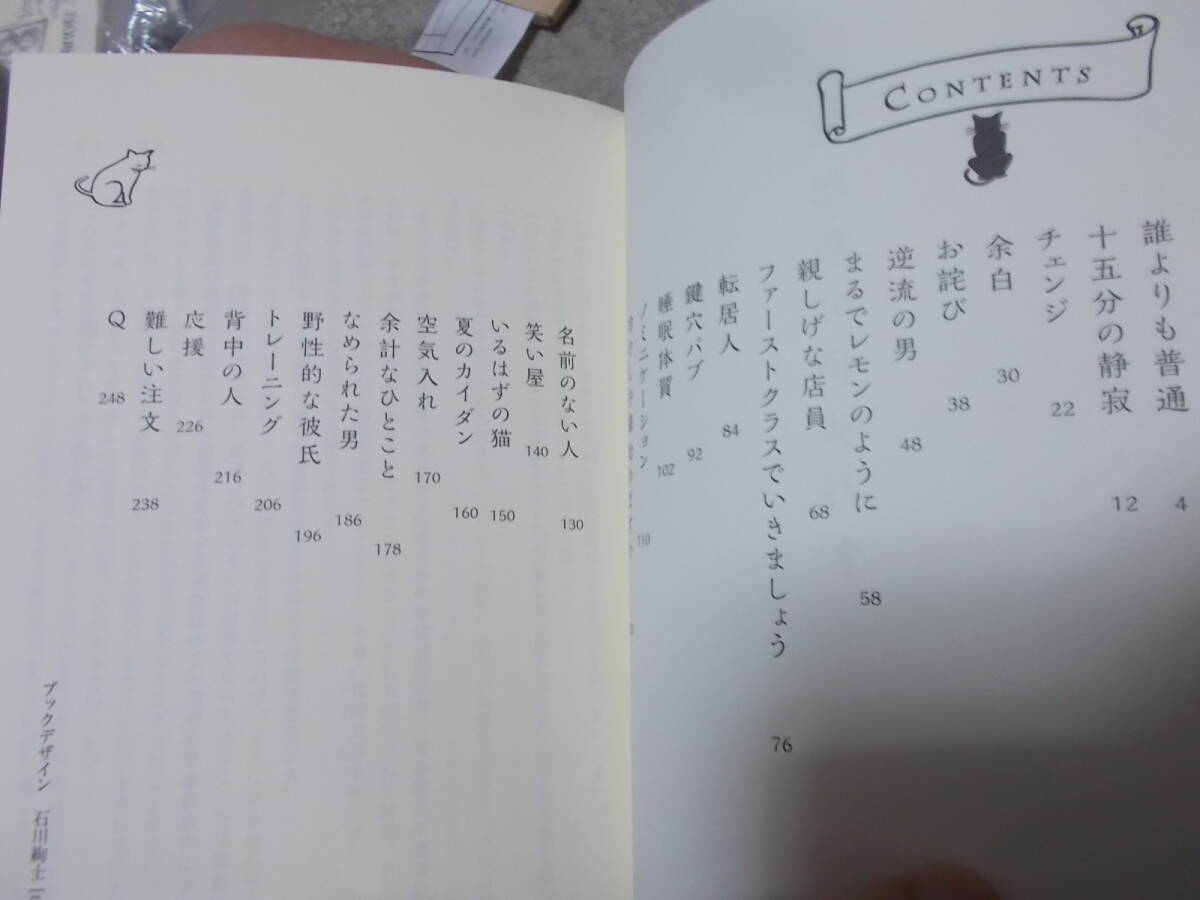 CONTENTS
誰よりも普通 4
十五分の静寂 12
チェンジ 22
余白 30
お詫び 38
逆流の男 48
まるでレモンのように 58
親しげな店員 68
ファーストクラスでいきましょう 76
転居人 84
鍵穴パブ 92
睡眠体質 102
ノミニケーション 110
名前のない人 130
笑い屋 140
いるはずの猫 150
夏のカイダン 160
空気入れ 170
余計なひとこと 178
なめられた男 186
野性的な彼氏 196
トレーニング 206
背中の人 216
応援 226
難しい注文 238
Q 248
ブックデザイン 石川絢士